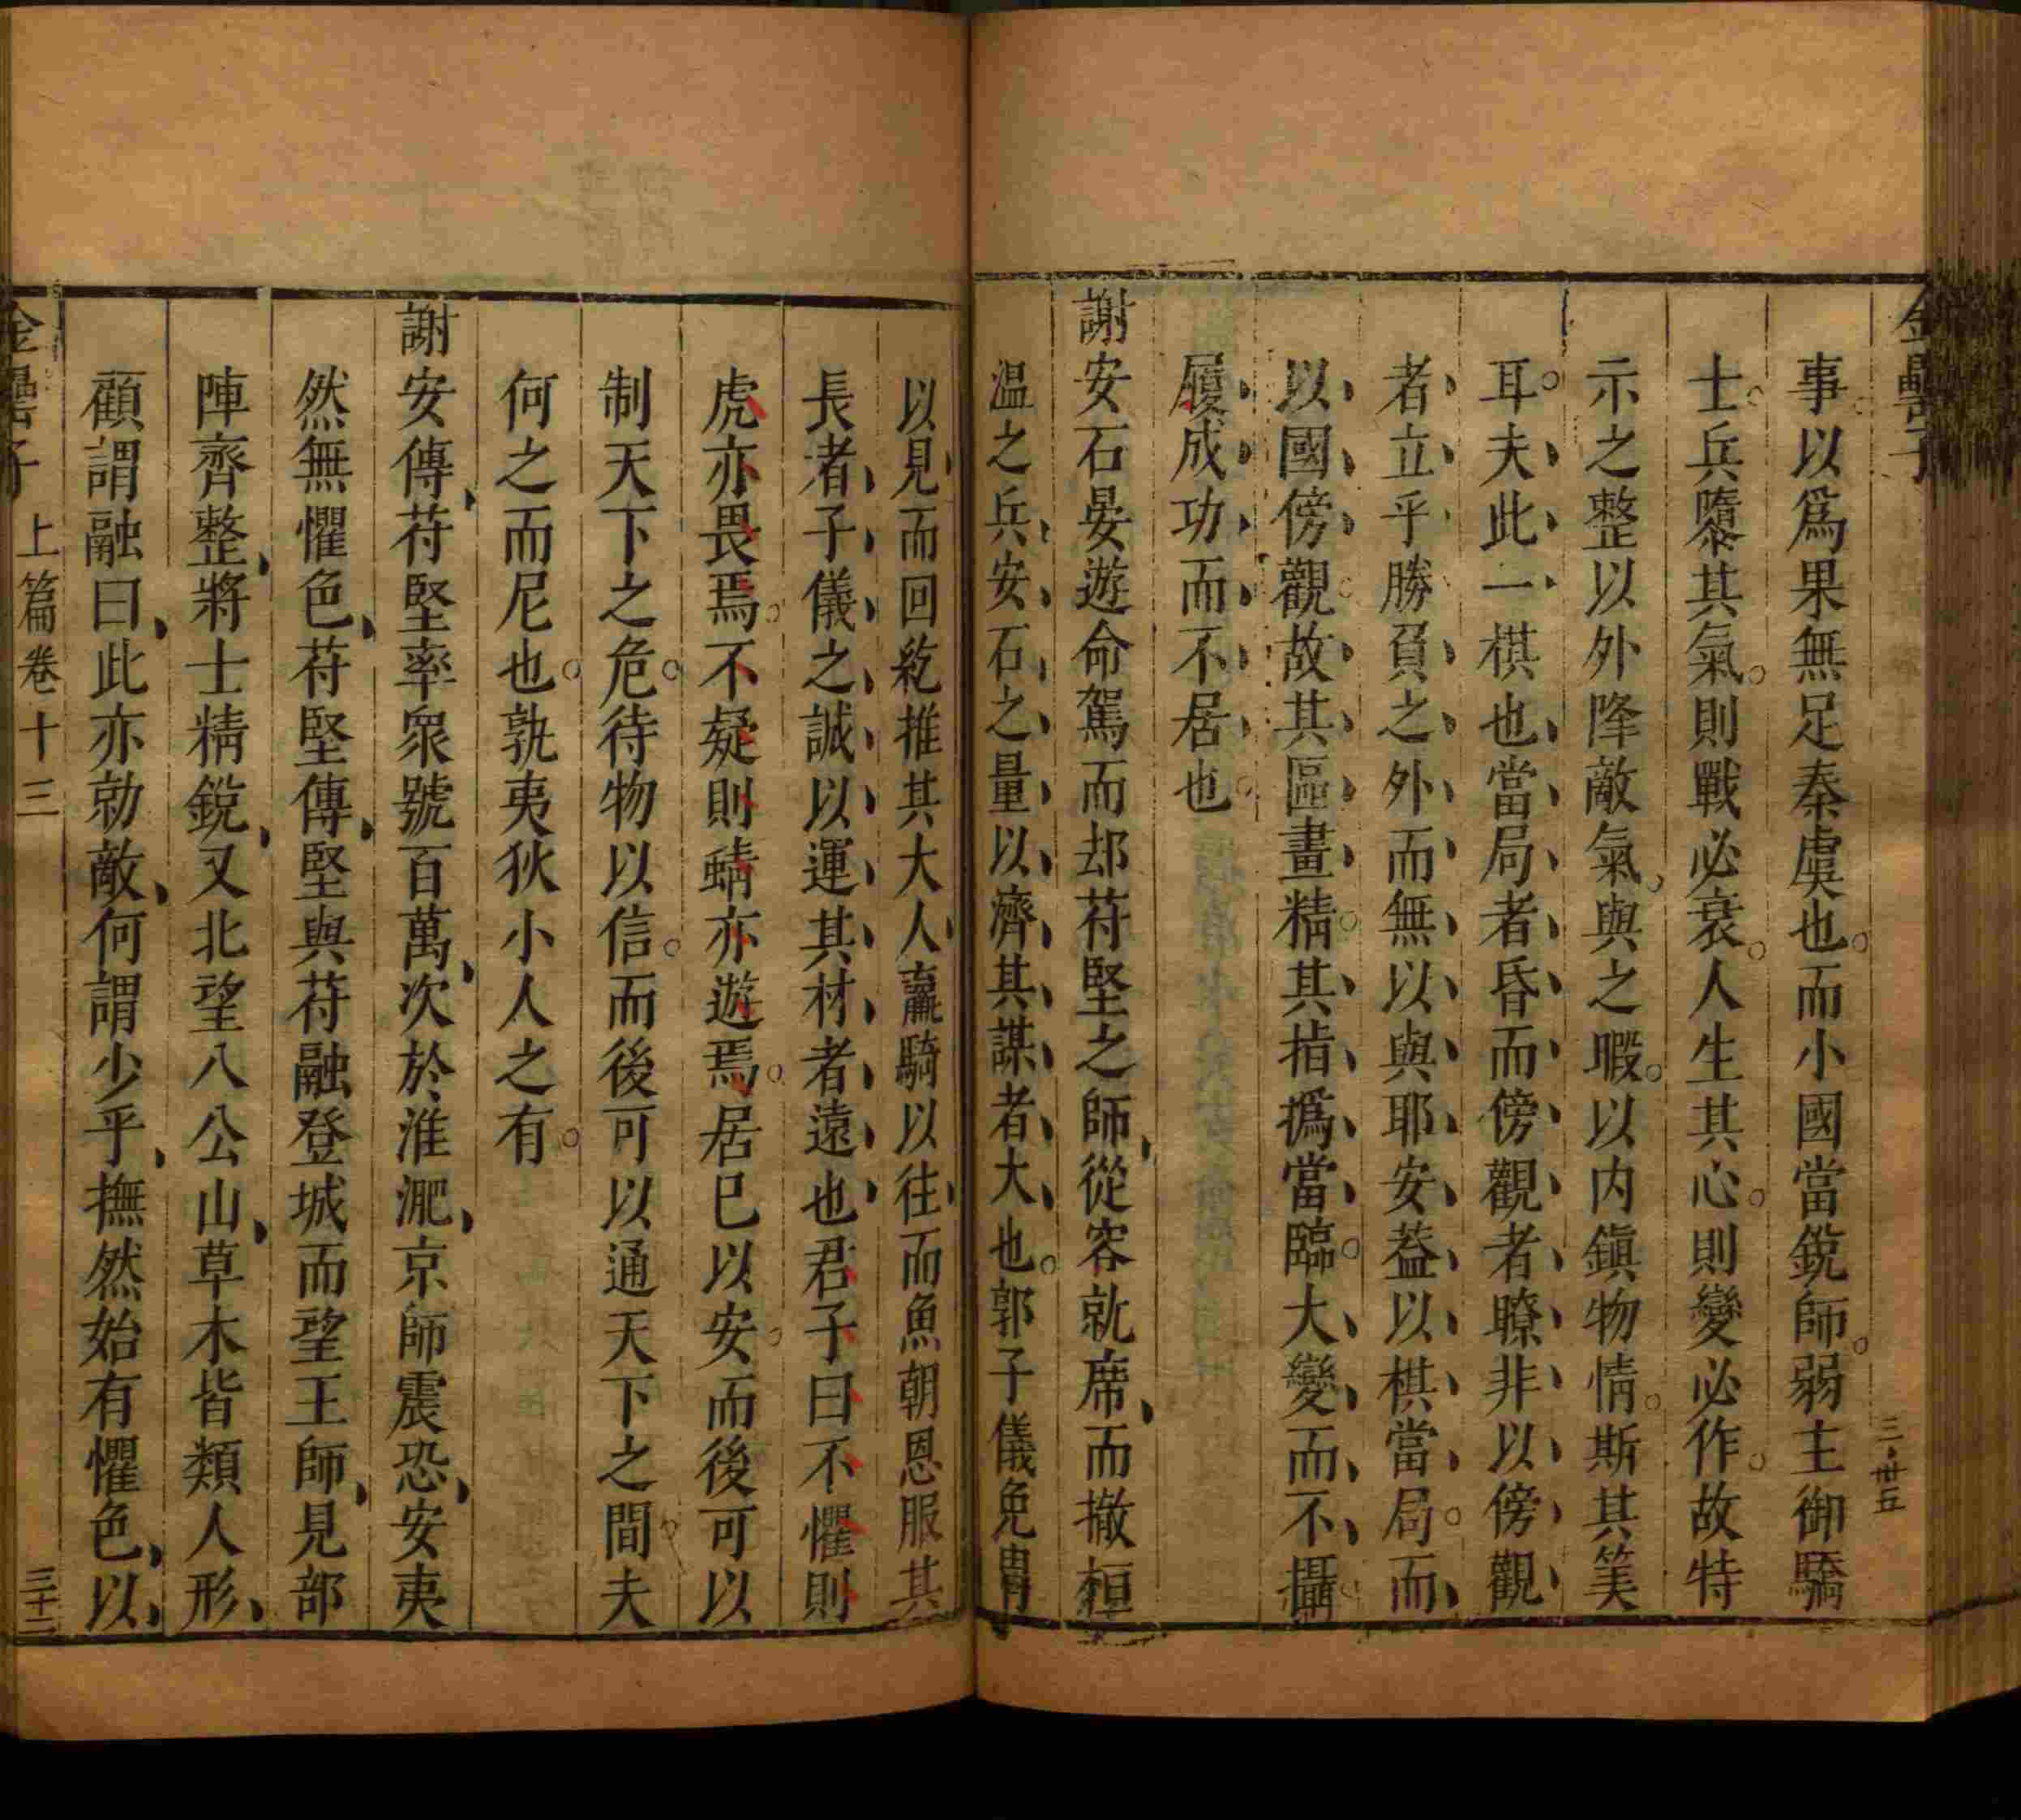 金罍子
三·丗五
事以爲果無足秦虞也而小國當銳師弱主御驕
士兵隳其氣則戰必衰人生其心則變必作故特
示之整以外降敵氣與之暇以内鎭物情斯其筭
耳夫此一棋也當局者昏而傍觀者瞭非以傍觀
者立乎勝負之外而無以與耶安葢以棋當局而
以國傍觀故其區畫精其指撝當臨大變而不攝
履成功而不居也
謝安石晏遊命駕而却苻堅之師從容就席而撤桓
温之兵安石之量以濟其謀者大也郭子儀免冑
以見而回紇推其大人羸騎以往而魚朝恩服其
長者子儀之誠以運其材者遠也君子曰不懼則
虎亦畏焉不疑則蜻亦遊焉居已以安而後可以
制天下之危待物以信而後可以通天下之間夫
何之而尼也孰夷狄小人之有
謝安傳苻堅率衆號百萬次於淮淝京師震恐安夷
然無懼色苻堅傳堅與苻融登城而望王師見部
陣齊整將士精銳又北望八公山草木皆類人形
顧謂融曰此亦勍敵何謂少乎撫然始有懼色以
金罍子 上篇卷十三 三十二